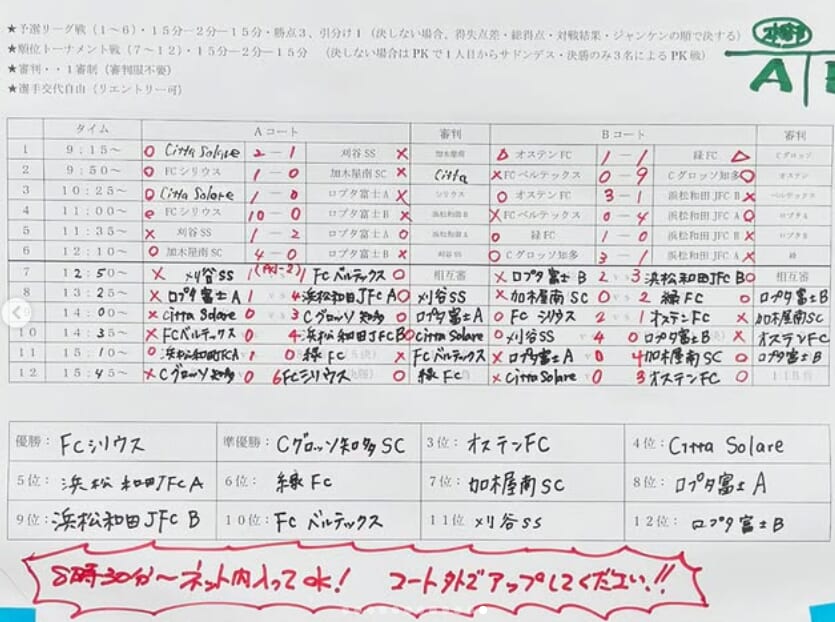 ★予選リーグ戦（1～6）・15分―2分―15分・勝点3、引分け1（決しない場合、得失点差・総得点・対戦結果・ジャンケンの順で決する）
★順位トーナメント戦（7～12）・15分―2分―15分　（決しない場合はPKで1人目からサドンデス・決勝のみ3名によるPK戦）
★審判・・1審制（審判服不要）
★選手交代自由（リエントリー可）
A
タイム Aコート 審判 Bコート 審判
1 9:15～ ○ Citta Solare 2―1 刈谷SS × 加木屋南 △ オステンFC 1―1 緑FC △ Cグロッソ
2 9:50～ ○ FCシリウス 1―0 加木屋南SC × Citta × FCベルテックス 0―9 Cグロッソ知多 ○ オステン
3 10:25～ ○ Citta Solare 1―0 ロプタ富士A × シリウス ○ オステンFC 3―1 浜松和田JFC B × ベルテックス
4 11:00～ ○ FCシリウス 10―0 ロプタ富士B × 浜松和田B × FCベルテックス 0―4 浜松和田JFC A ○ ロプタA
5 11:35～ × 刈谷SS 1―2 ロプタ富士A ○ 浜松和田A ○ 緑FC 1―0 浜松和田JFC B × ロプタB
6 12:10～ ○ 加木屋南SC 4―0 ロプタ富士B × 刈谷SS ○ Cグロッソ知多 3―1 浜松和田JFC A × 緑
7 12:50～ × 刈谷SS 1 1 FCベルテックス ○ 相互審 × ロプタ富士B 2 3 浜松和田JFC B ○ 相互審
8 13:25～ × ロプタ富士A 1 4 浜松和田JFC A ○ 刈谷SS × 加木屋南SC 0 2 緑FC ○ ロプタ富士B
9 14:00～ × Citta Solare 0 3 Cグロッソ知多 ○ ロプタ富士A ○ FCシリウス 2 1 オステンFC × 加木屋南SC
10 14:35～ × FCベルテックス 0 4 浜松和田JFC B ○ Citta Solare ○ 刈谷SS 4 0 ロプタ富士B × オステンFC
11 15:10～ ○ 浜松和田JFC A 1 0 緑FC × FCベルテックス × ロプタ富士A 0 4 加木屋南SC ○ ロプタ富士B
12 15:45～ × Cグロッソ知多 0 6 FCシリウス ○ 緑FC × Citta Solare 0 3 オステンFC ○
優勝：FCシリウス 準優勝：Cグロッソ知多SC 3位：オステンFC 4位：Citta Solare
5位：浜松和田JFC A 6位：緑FC 7位：加木屋南SC 8位：ロプタ富士A
9位：浜松和田JFC B 10位：FCベルテックス 11位 刈谷SS 12位：ロプタ富士B
8時30分～ネット内入ってOK! コート外でアップしてください!!